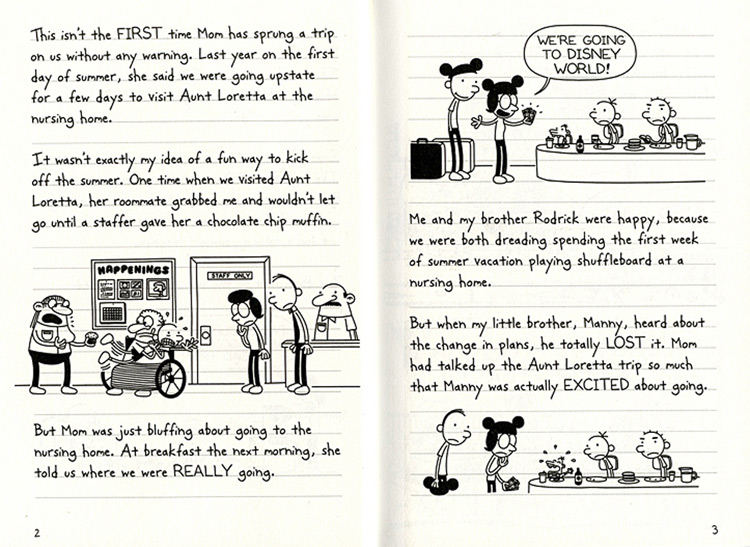 This isn't the FIRST time Mom has sprung a trip
on us without any warning. Last year on the first
day of summer, she said we were going upstate
for a few days to visit Aunt Loretta at the
nursing home.
It wasn't exactly my idea of a fun way to kick
off the summer. One time when we visited Aunt
Loretta, her roommate grabbed me and wouldn't let
go until a staffer gave her a chocolate chip muffin.
HAPPENINGS
STAFF ONLY
But Mom was just bluffing about going to the
nursing home. At breakfast the next morning, she
told us where we were REALLY going.
2
WE'RE GOING
TO DISNEY
WORLD!
Me and my brother Rodrick were happy, because
we were both dreading spending the first week
of summer vacation playing shuffleboard at a
nursing home.
But when my little brother, Manny, heard about
the change in plans, he totally LOST it. Mom
had talked up the Aunt Loretta trip so much
that Manny was actually EXCITED about going.
3